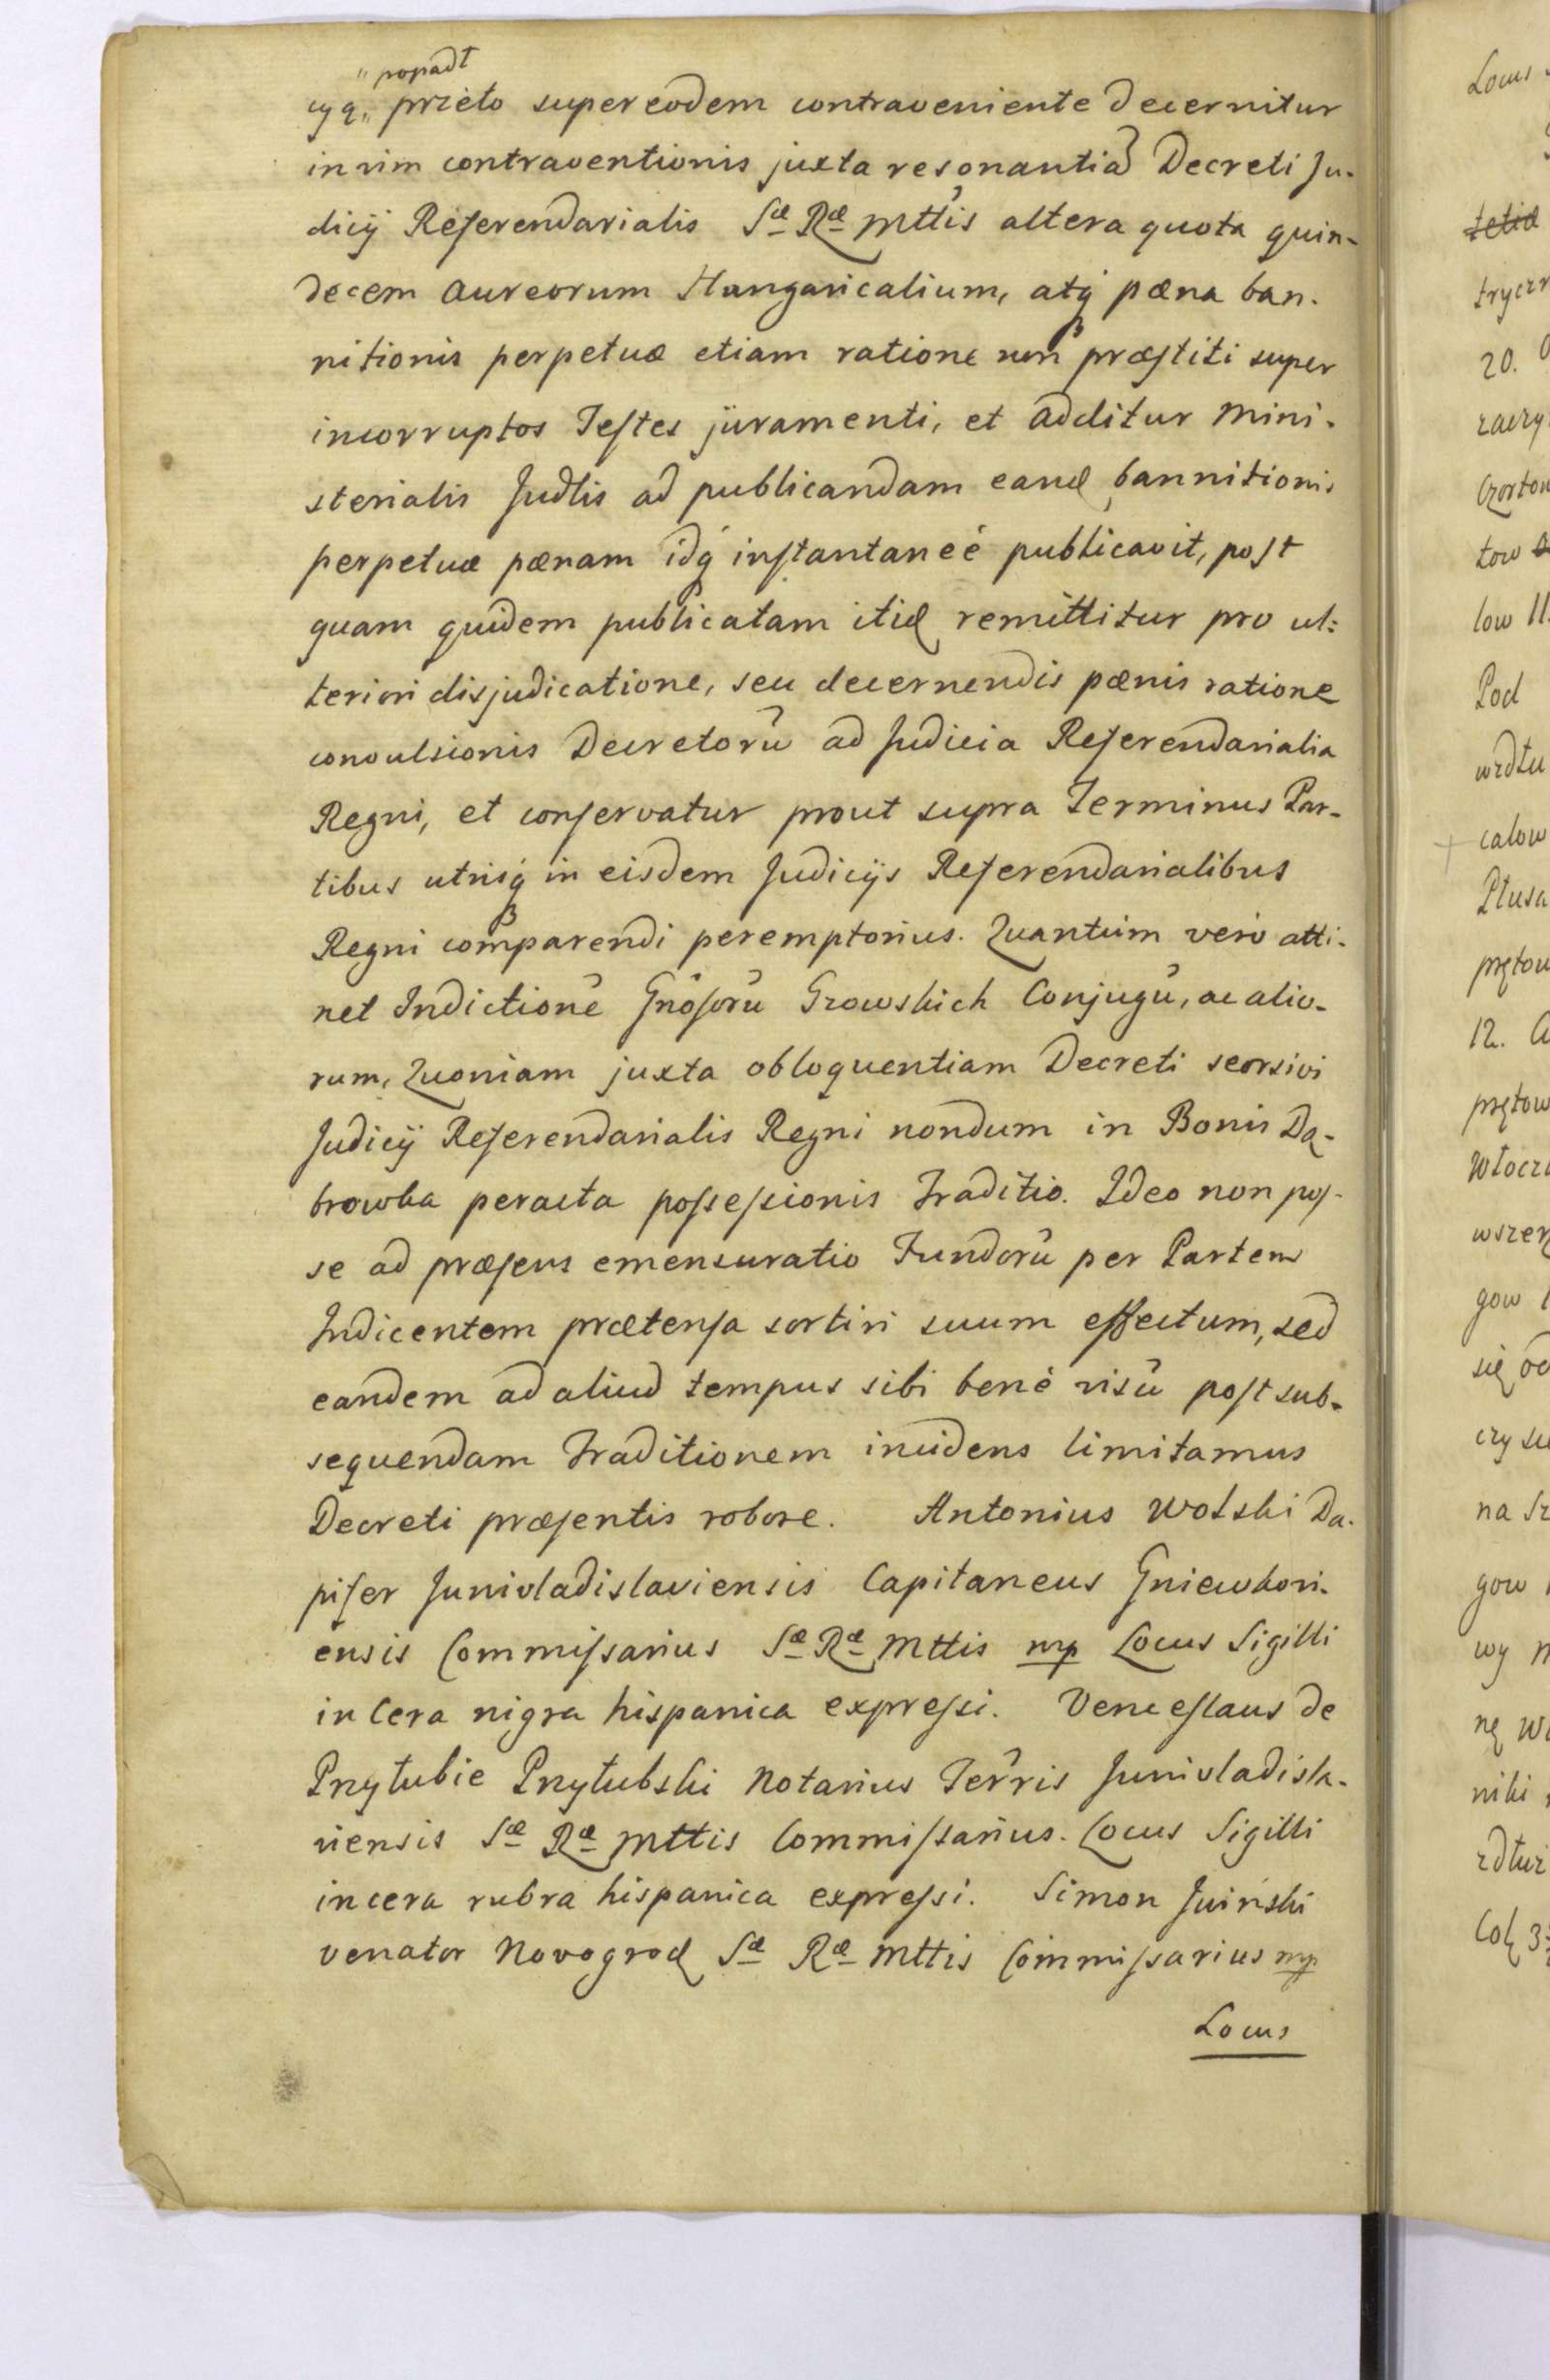 "popadł
cyą," przeto super eodem contraveniente decernitur
in vim contraventionis juxta resonantiã Decreti Ju-
dicij Referendarialis Sæ Ræ Mttis altera quota quin-
decem Aureorum Hungaricalium, atq́ pæna ban-
nitionis perpetuæ etiam ratione non præstiti super
incorruptos Testes juramenti, et additur Mini-
sterialis Judlis ad publicandam eand bannitionis
perpetuæ pænam idq́ instantaneé publicavit, post
quam quidem publicatam itid remittitur pro ul:
teriori disjudicatione, seu decernendis pænis ratione
convulsionis Decretorũ ad Judicia Referendarialia
Regni, et conservatur prout supra Terminus Par-
tibus utrisq́ in eisdem Judicijs Referendarialibus
Regni comparendi peremptorius. Quantùm verò atti-
net Indictionẽ Gñosorũ Growskich Conjugũ, ac alio-
rum, Quoniam juxta obloquentiam Decreti seorsivi
Judicij Referendarialis Regni nondum in Bonis Dą-
browka peracta possessionis Traditio. Ideo non pos-
se ad præsens emensuratio Fundorũ per Partem
Indicentem prætensa sortiri suum effectum, sed
eandem ad aliud tempus sibi benè visũ post sub-
sequendam Traditionem incidens limitamus
Decreti præsentis robore. Antonius Wolski Da-
pifer Junivladislaviensis Capitaneus Gniewkovi-
ensis Commissarius Sæ Ræ Mttis mp Locus Sigilli
in Cera nigra hispanica expressi. Venceslaus de
Przyłubie Przyłubski Notarius Terris Junivladisla-
viensis Sæ Ræ Mttis Commissarius. Locus Sigilli
in cera rubra hispanica expressi. Simon Jwiński
venator Novogrod Sæ Ræ Mttis Commissarius mp
Locus
Locus
20.
Pod
12.
gow
gow